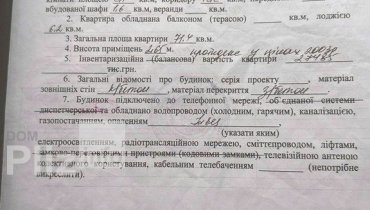 вбудованої шафи 1.6 кв.м, веранди кв.м
2. Квартира обладнана балконом (терасою) кв.м, лоджією
6.2 кв.м.
3. Загальна площа квартири 71.4 кв.м.
4. Висота приміщень 2.65 м.
5. Інвентаризаційна (балансова) вартість квартири
тис.грн.
6. Загальні відомості про будинок: серія проекту , матеріал
зовнішніх стін , матеріал перекриття
7. Будинок підключено до телефонної мережі, об'єднаної системи
диспетчерської та обладнано водопроводом (холодним, гарячим), каналізацією,
газопостачанням, опаленням
(указати яким)
електроосвітленням, радіотрансляційною мережею, сміттєпроводом, ліфтами,
замково-переговорними пристроями (кодовими замками), телевізійною антеною
колективного користування, кабельним телебаченням (непотрібне
викреслити).
DOM